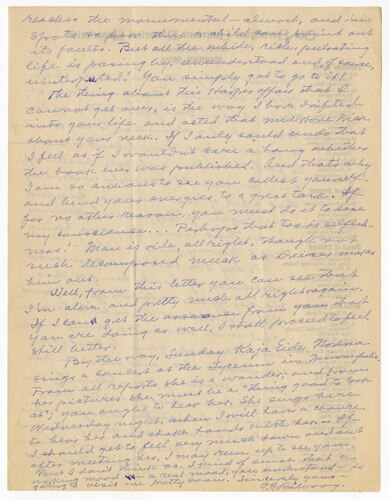 reaches the monumental — almost, and in
spots so poor that a child can point out
its faults. But all the while, rich, pulsating
life is passing by, ununderstood and, of course,
uninterpreted! You simply got to go to it!
The thing about this Harper affair that I
cannot get over, is the way I have drifted
into your life and acted that millstone trick
about your neck. If I only could undo that
I feel as if I wouldn't care a hang whether
the book ever was published. And that's why
I am so anxious to see you collect yourself
and bend your energies to a great task. If
for no other reason, you must do it to ease
my conscience... Perhaps that too is selfish-
ness! Man is vile, all right, though not
such decomposed muck as makes
him out.
Well, from this letter you can see that
I'm alive and pretty much all right again.
If I can get the assurance from you that
you are doing as well, I shall proceed to feel
still better.
By the way, Sunday Kaja Eide Norena
sings a concert at the Lyceum in Minneapolis.
From all reports she is a wonder; and from
her pictures she must be a "thing good to look
at"; you ought to hear her. She sings here
Wednesday night, when I will have a chance
to hear her and shake hands with her. If
I should get to feel very much down and out
after meeting her, I may run up to see you.
But I don't think so, I kind of sense that a
writing mood — a real mood, you understand — is
going to visit me pretty soon. Sincerely yours